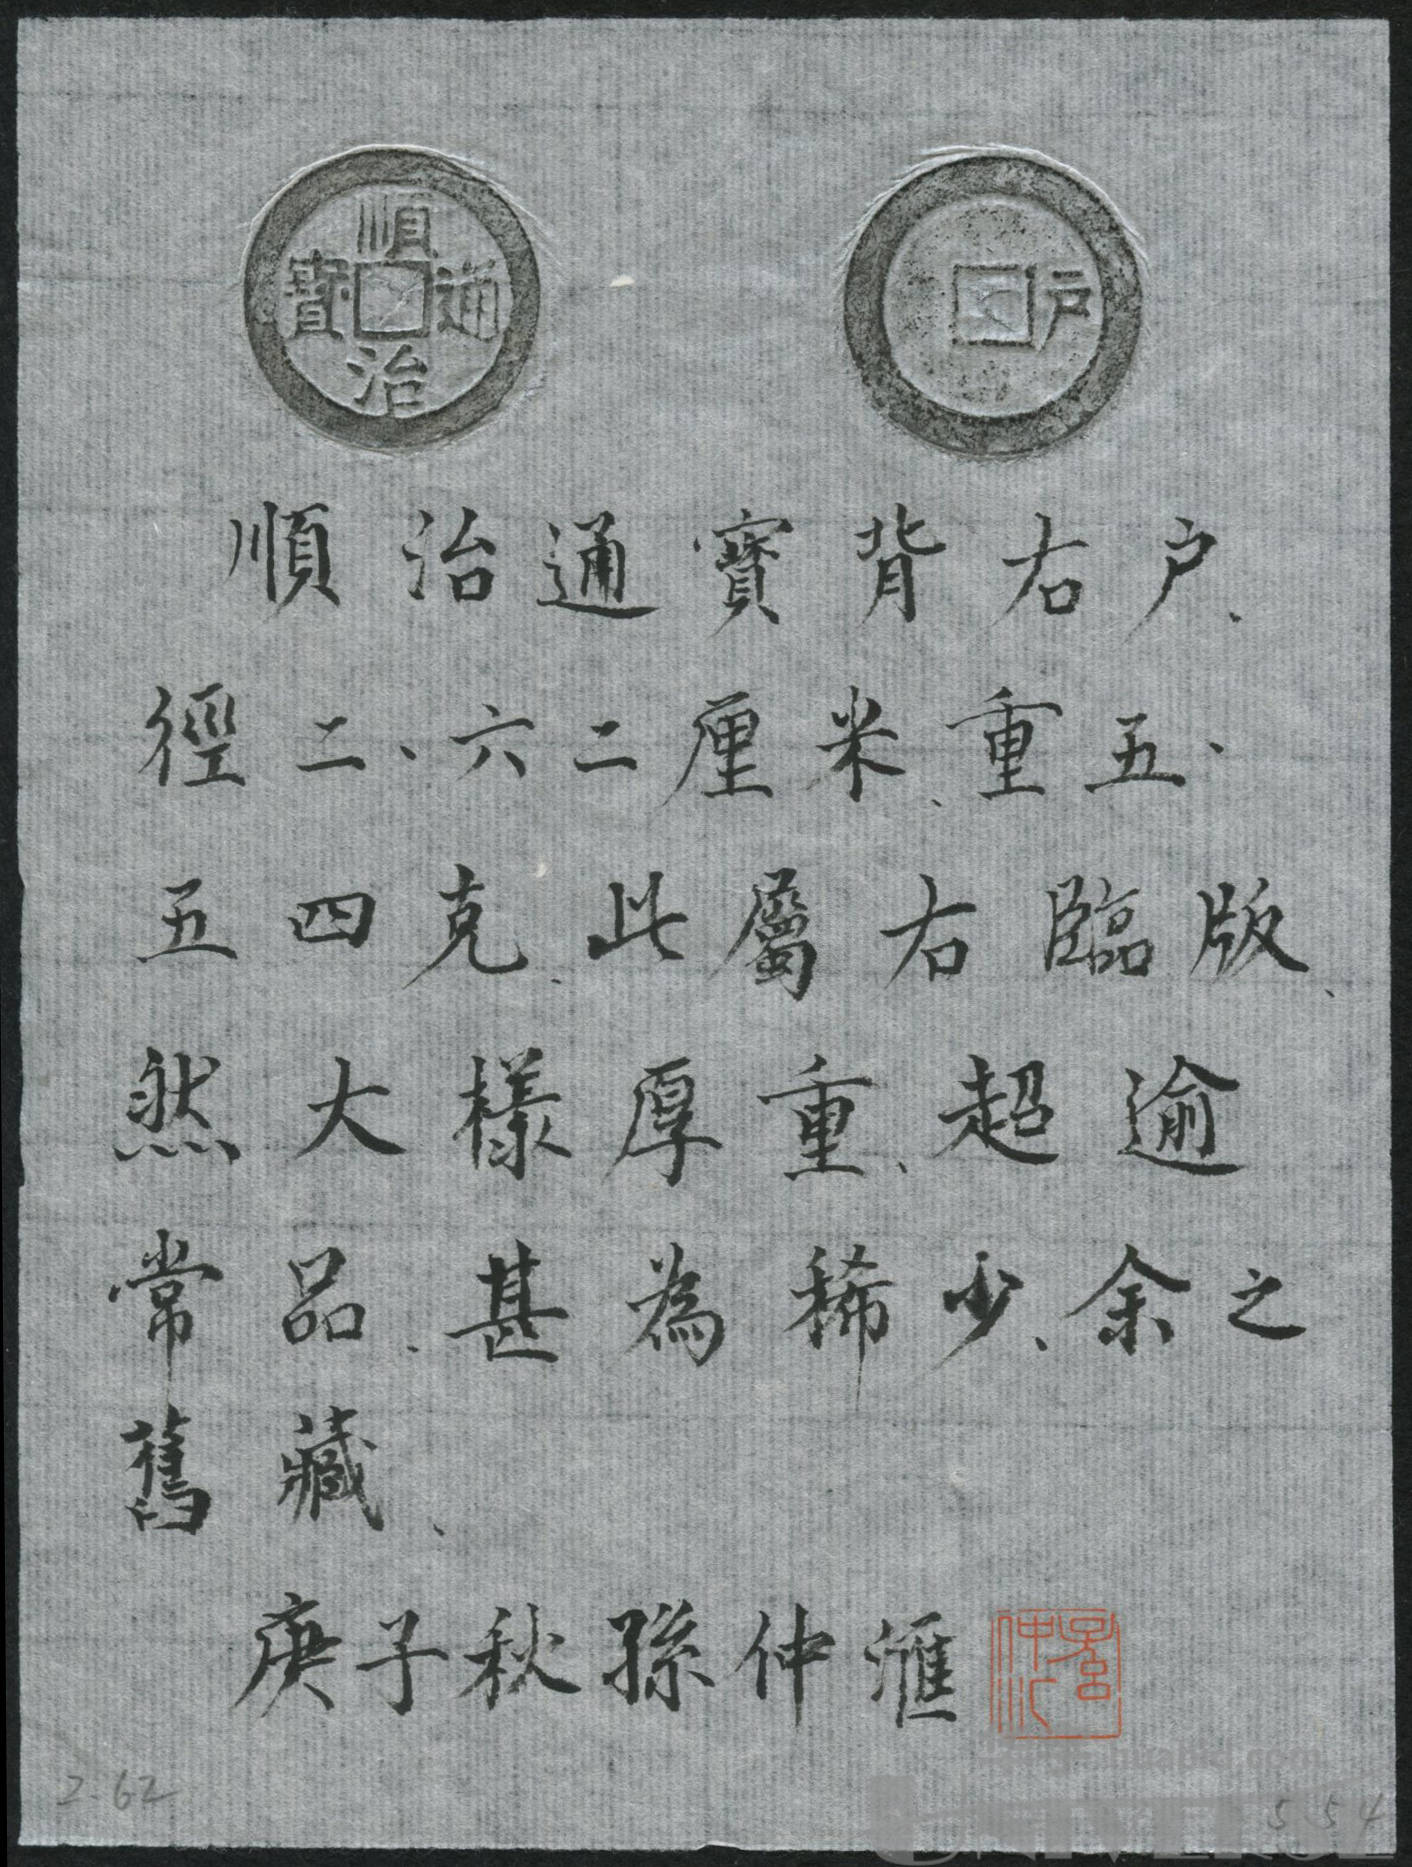 順治通寶
户
順治通寶背右户、
徑二、六二厘米、重五、
五四克、此屬右臨版、
然大樣厚重、超逾
常品、甚為稀少、余之
舊藏、
庚子秋孫仲滙
2.62
5.54